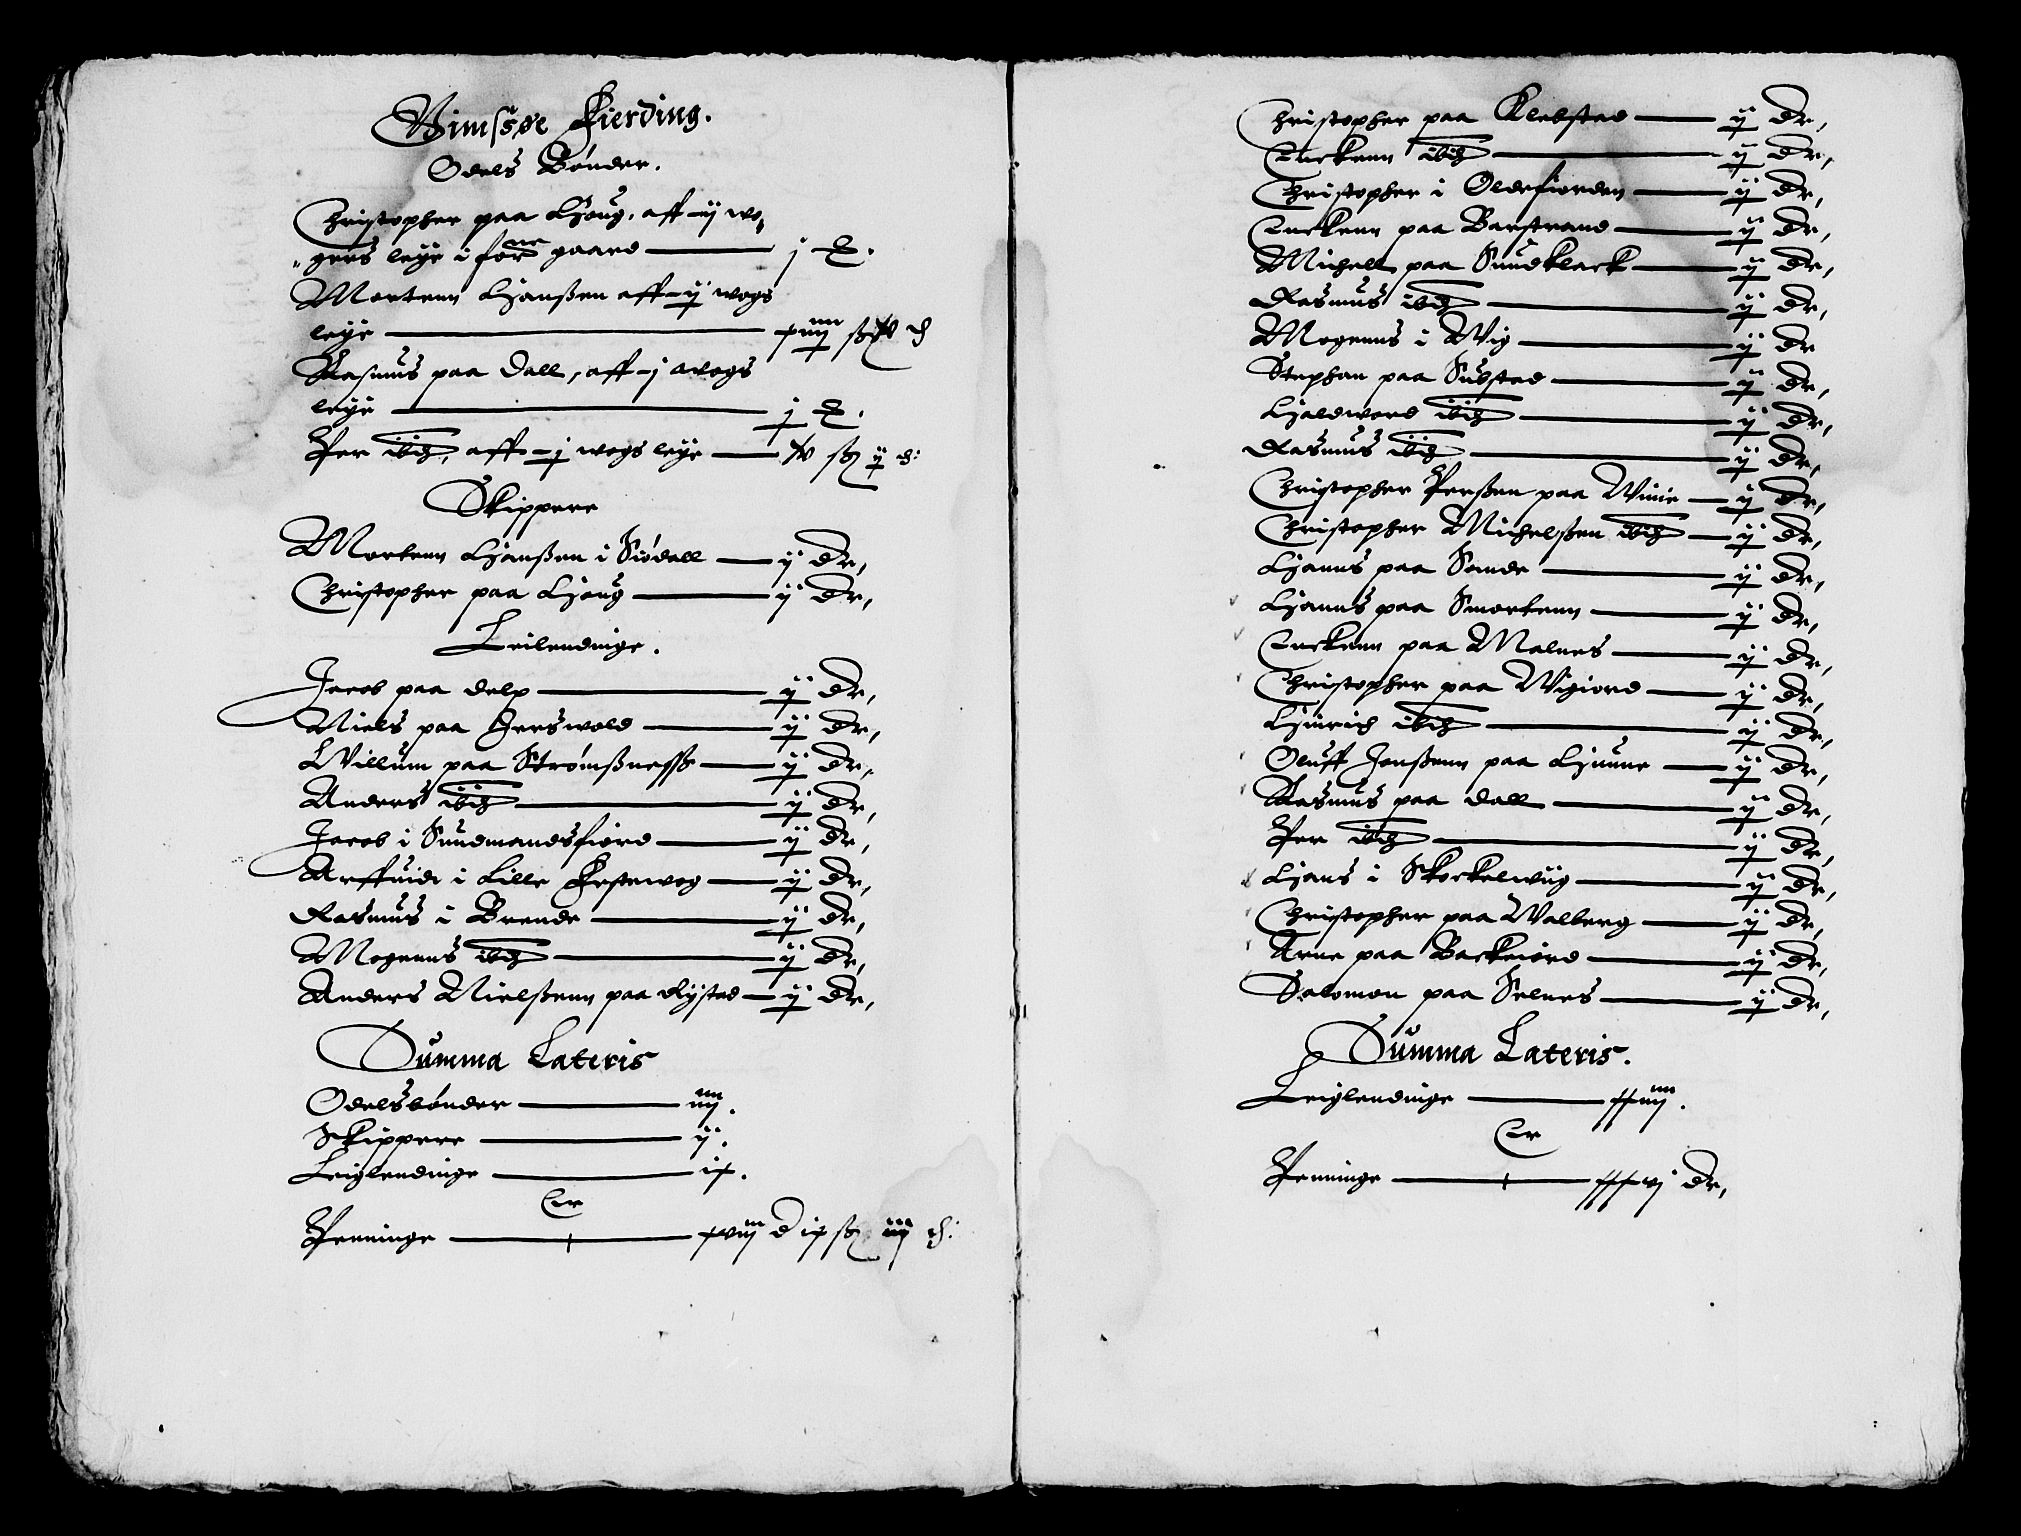 Vimsøe Fierding.
Odels Bønder.
Christopher paa Houg, aff ij wo,
gers leye i forne gaard j
Mortenn Hanßen aff ij wogs
leye xiiij ß d
Rasmus paa Dall, aff j wogs
leye j
Per ibid, aff j wogs leye ß ij d:
Skippere
Mortenn Hanßen i Siødall ij dr,
Christopher paa Houg ij dr,
Leilendinge.
Jacob paa Delp ij dr,
Niels paa Jerswold ij dr,
Willum paa Strømßneß ij dr,
Anders ibid ij dr,
Jacob i Sundmandsfiord ij dr,
Arffuid i Lille Festewog ij dr,
Rasmus i Brende ij dr,
Mogenns ibid ij dr,
Anders Nielßenn paa Rystad ij dr,
Summa Lateris
Odelsbønder iiij.
Skippere ij.
Leiglendinge ix.
Er
Penninge xviij d ix ß iiij d:
Christopher paa Klebstad ij dr,
Enckenn ibid ij dr,
Christopher i Oldefiorden ij dr,
Enckenn paa Barstrand ij dr,
Michell paa Sundklack ij dr,
Rasmus ibid ij dr,
Mogenns i Wig ij dr
Stephan paa Substad ij dr,
Haldword ibid ij dr,
Rasmus ibid ij dr,
Christopher Perßen paa Winie ij dr,
Christopher Michelßen ibid ij dr,
Hanns paa Sande ij dr,
Hanns paa Smortenn ij dr,
Enckenn paa Malnes ij dr,
Christopher paa Wigiord ij dr,
Hinrich ibid ij dr,
Oluff Jenßenn paa Hunne ij dr,
Rasmus paa Dall ij dr,
Per ibid ij dr,
Hans i Skockelwiig ij dr,
Christopher paa Walberg ij dr,
Arne paa Backeiord ij dr,
Salomon paa Selnes ij dr,
Summa Lateris.
Leiglendinge xxiiij.
Er
Penninge dr,